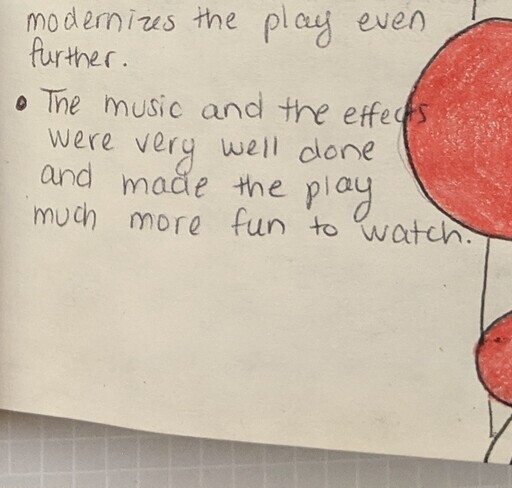 modernizes the play even
further.
• The music and the effects
were very well done
and made the play
much more fun to watch.